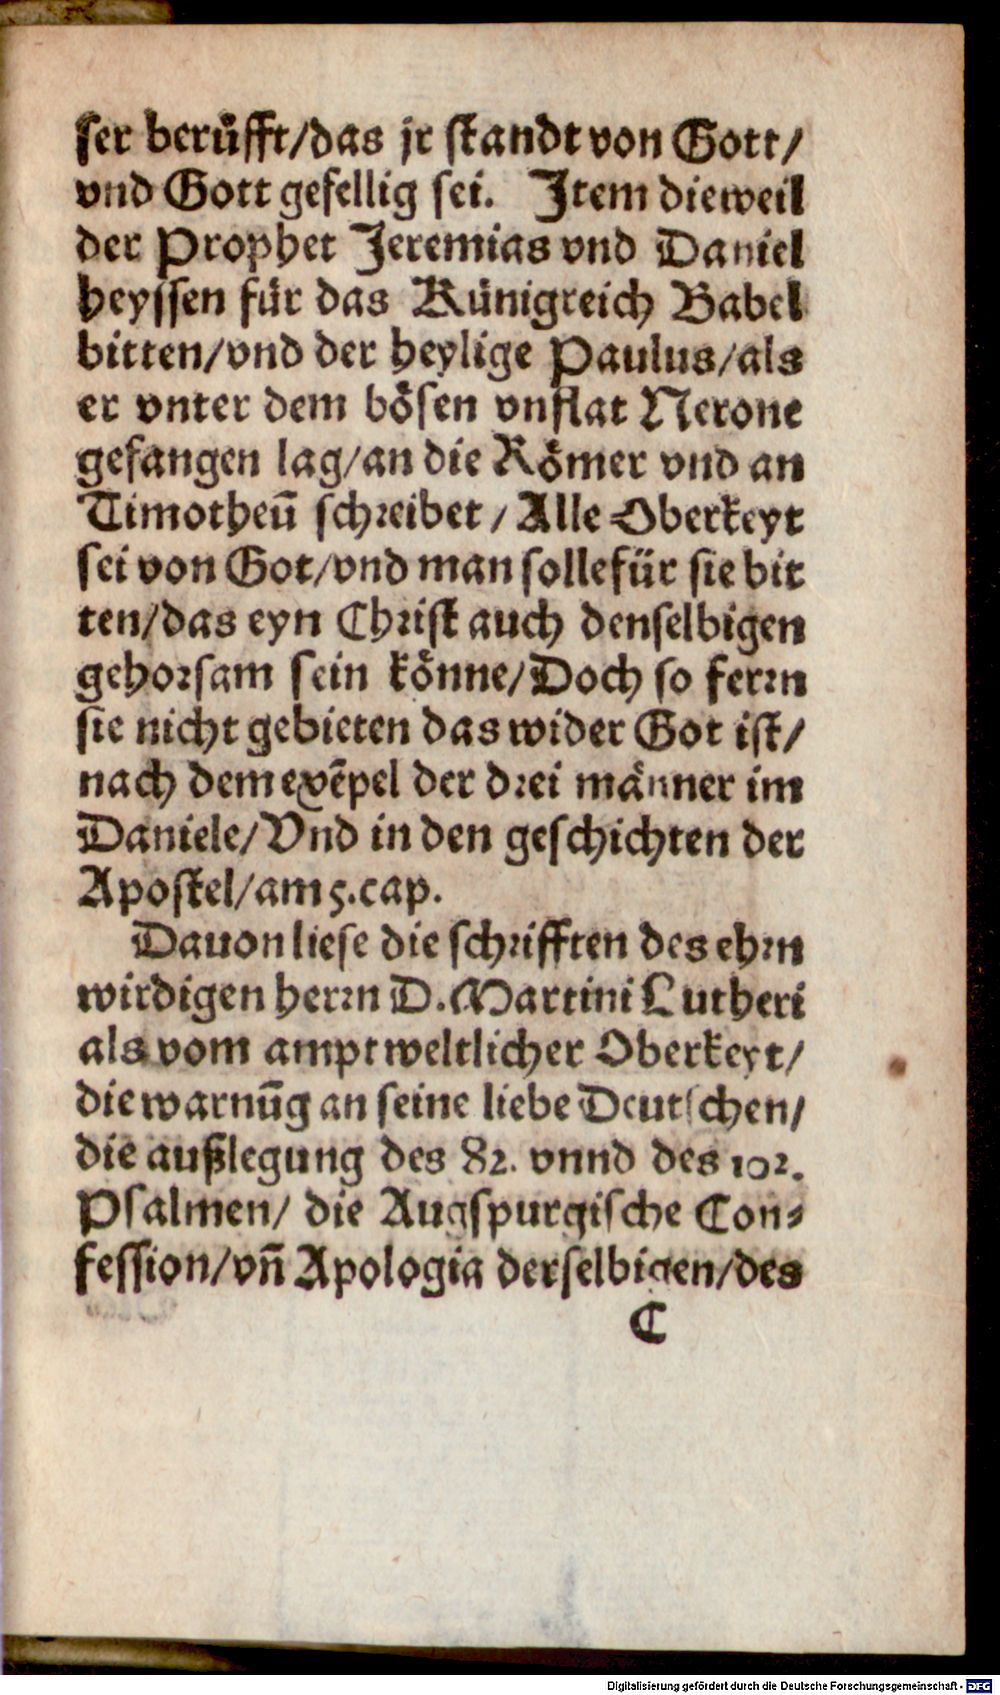 ser berüfft/das jr standt von Gott/
vnd Gott gefellig sei. Item dieweil
der Prophet Jeremias vnd Daniel
heyssen für das Künigreich Babel
bitten/vnd der heylige Paulus/als
er vnter dem bösen vnflat Nerone
gefangen lag/an die Römer vnd an
Timotheū schreibet / Alle Oberkeyt
sei von Got/vnd man solle für sie bit
ten/das eyn Christ auch denselbigen
gehorsam sein könne/Doch so ferrn
sie nicht gebieten das wider Got ist/
nach dem exēpel der drei männer im
Daniele/Vnd in den geschichten der
Apostel/am 5.cap.
Dauon liese die schrifften des ehrn
wirdigen herrn D. Martini Lutheri
als vom ampt weltlicher Oberkeyt/
die warnūg an seine liebe Deutschen/
die außlegung des 82. vnnd des 102.
Psalmen/ die Augspurgische Con⸗
fession/vñ Apologia derselbigen/des
C
Digitalisierung gefördert durch die Deutsche Forschungsgemeinschaft - DFG